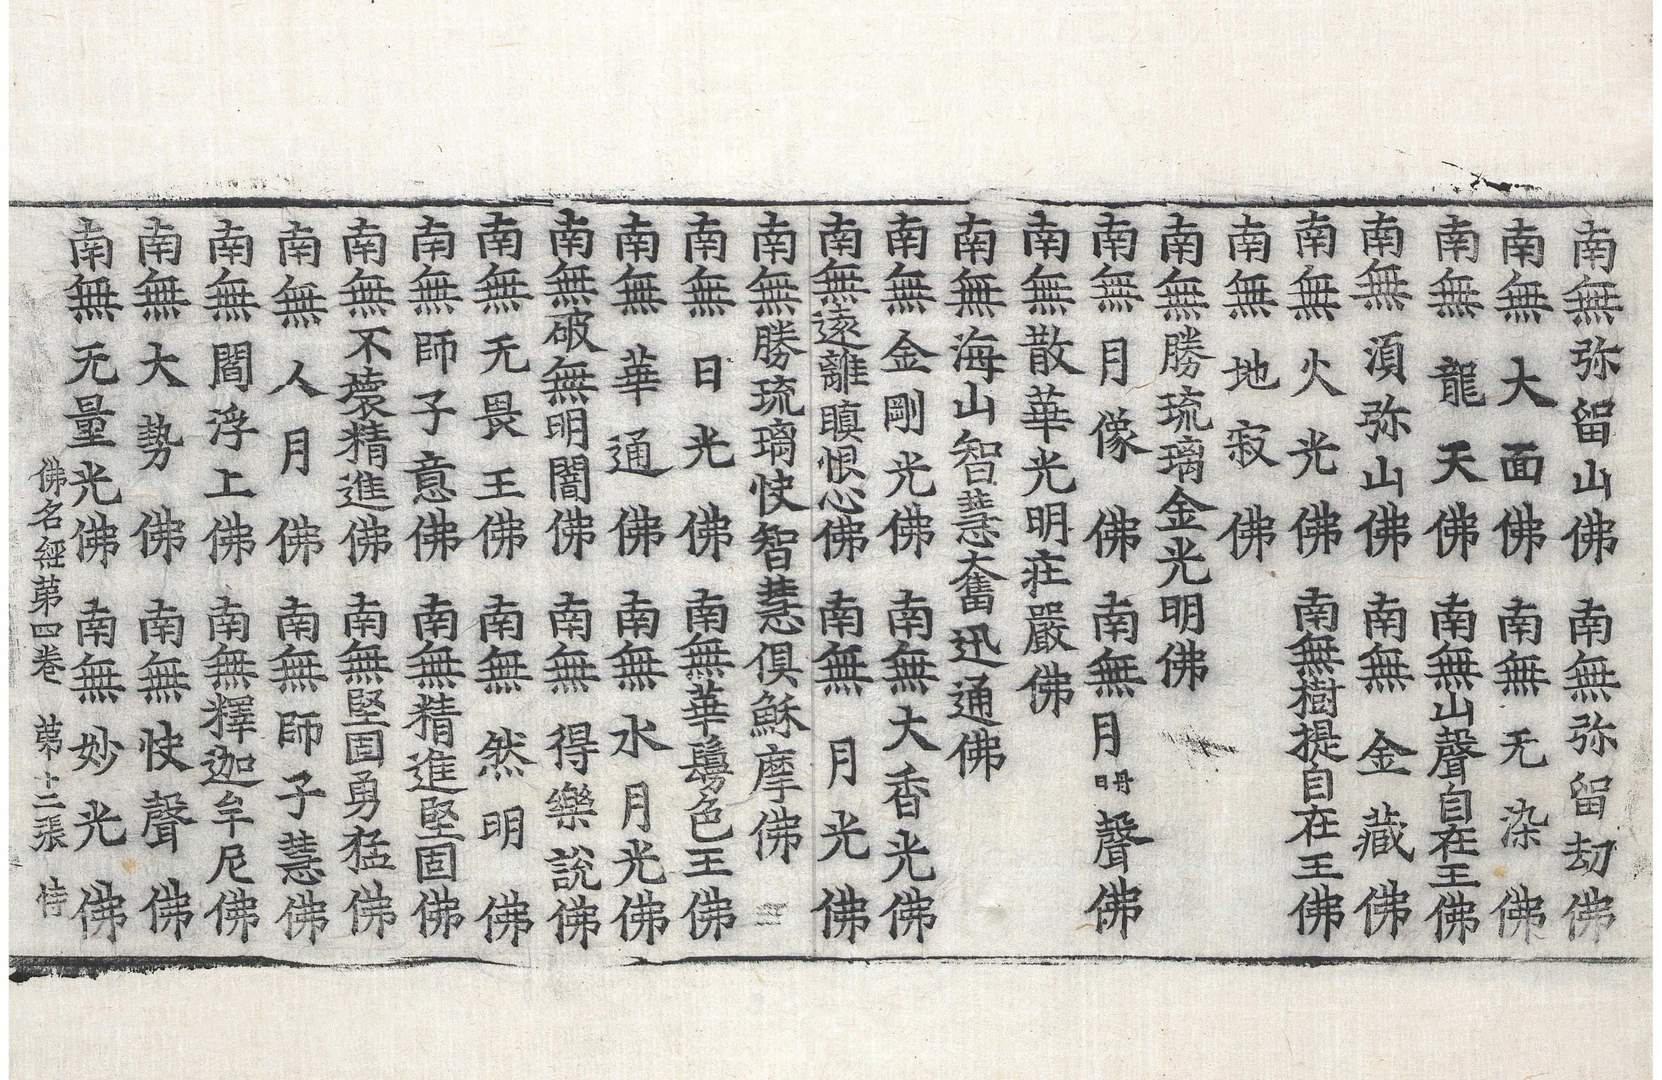 南無弥留山佛 南無弥留劫佛
南無大面佛 南無无染佛
南無龍天佛 南無山聲自在王佛
南無湏弥山佛 南無金藏佛
南無火光佛 南無樹提自在王佛
南無地寂佛
南無勝琉璃金光明佛
南無月像佛 南無月聲佛
南無散華光明莊嚴佛
南無海山智慧奮迅通佛
南無金剛光佛 南無大香光佛
南無遠離瞋恨心佛 南無月光佛
南無勝琉璃快智慧俱穌摩佛
南無日光佛 南無華鬘色王佛
南無華通佛 南無水月光佛
南無破無明闇佛 南無得樂說佛
南無无畏王佛 南無然明佛
南無師子意佛 南無精進堅固佛
南無不壞精進佛 南無堅固勇猛佛
南無人月佛 南無師子慧佛
南無閻浮上佛 南無釋迦牟尼佛
南無大勢佛 南無快聲佛
南無无量光佛 南無妙光佛
佛名經苐四卷 苐十二張 恃